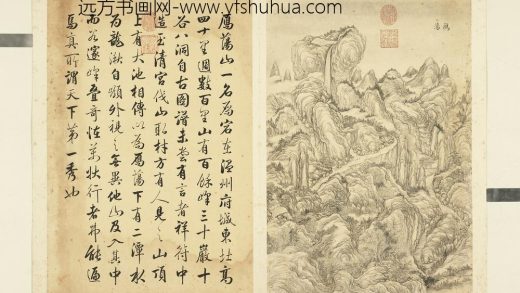 远方书画网-www.yfshuhua.com
鴈蕩
鴈蕩山一名鴈宕在溫州府城東北高
四十里週數百里山有百餘峰三十巖十
谷八洞自古圖譜未嘗有言者祥符中
造玉清宮伐山取材方有人見之山頂
上有大池相傳以為鴈蕩下有二潭水
為龍湫自嶺外視之無異他山及入其中
而谷邃峰叠奇怪萬狀行者弗能遍
焉真所謂天下第一秀也